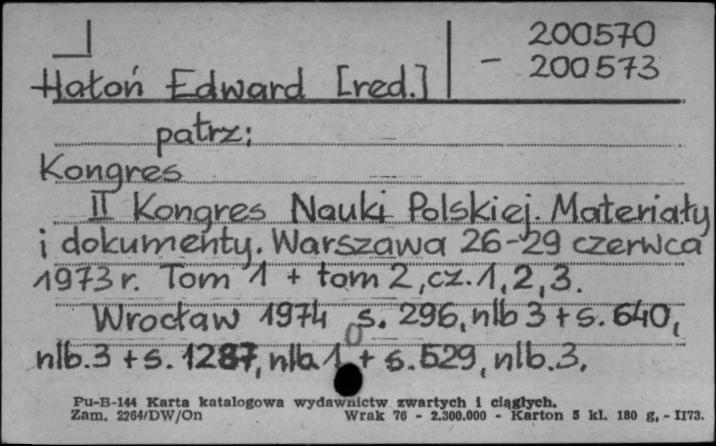 200570
Hałoń Edward [red.] - 200573
patrz:
Kongres
II Kongres Nauki Polskiej. Materiały
i dokumenty. Warszawa 26-29 czerwca
1973 r. Tom 1 + tom 2, cz. 1, 2, 3.
Wrocław 1974 s. 296, nlb 3 + s. 640,
nlb. 3 + s. 1287, nlb. 1 + s. 529, nlb. 3.
Pu-B-144 Karta katalogowa wydawnictw zwartych i ciągłych.
Zam. 2264/DW/On Wrak 76 - 2.300.000 - Karton 5 kl. 180 g, - II73.